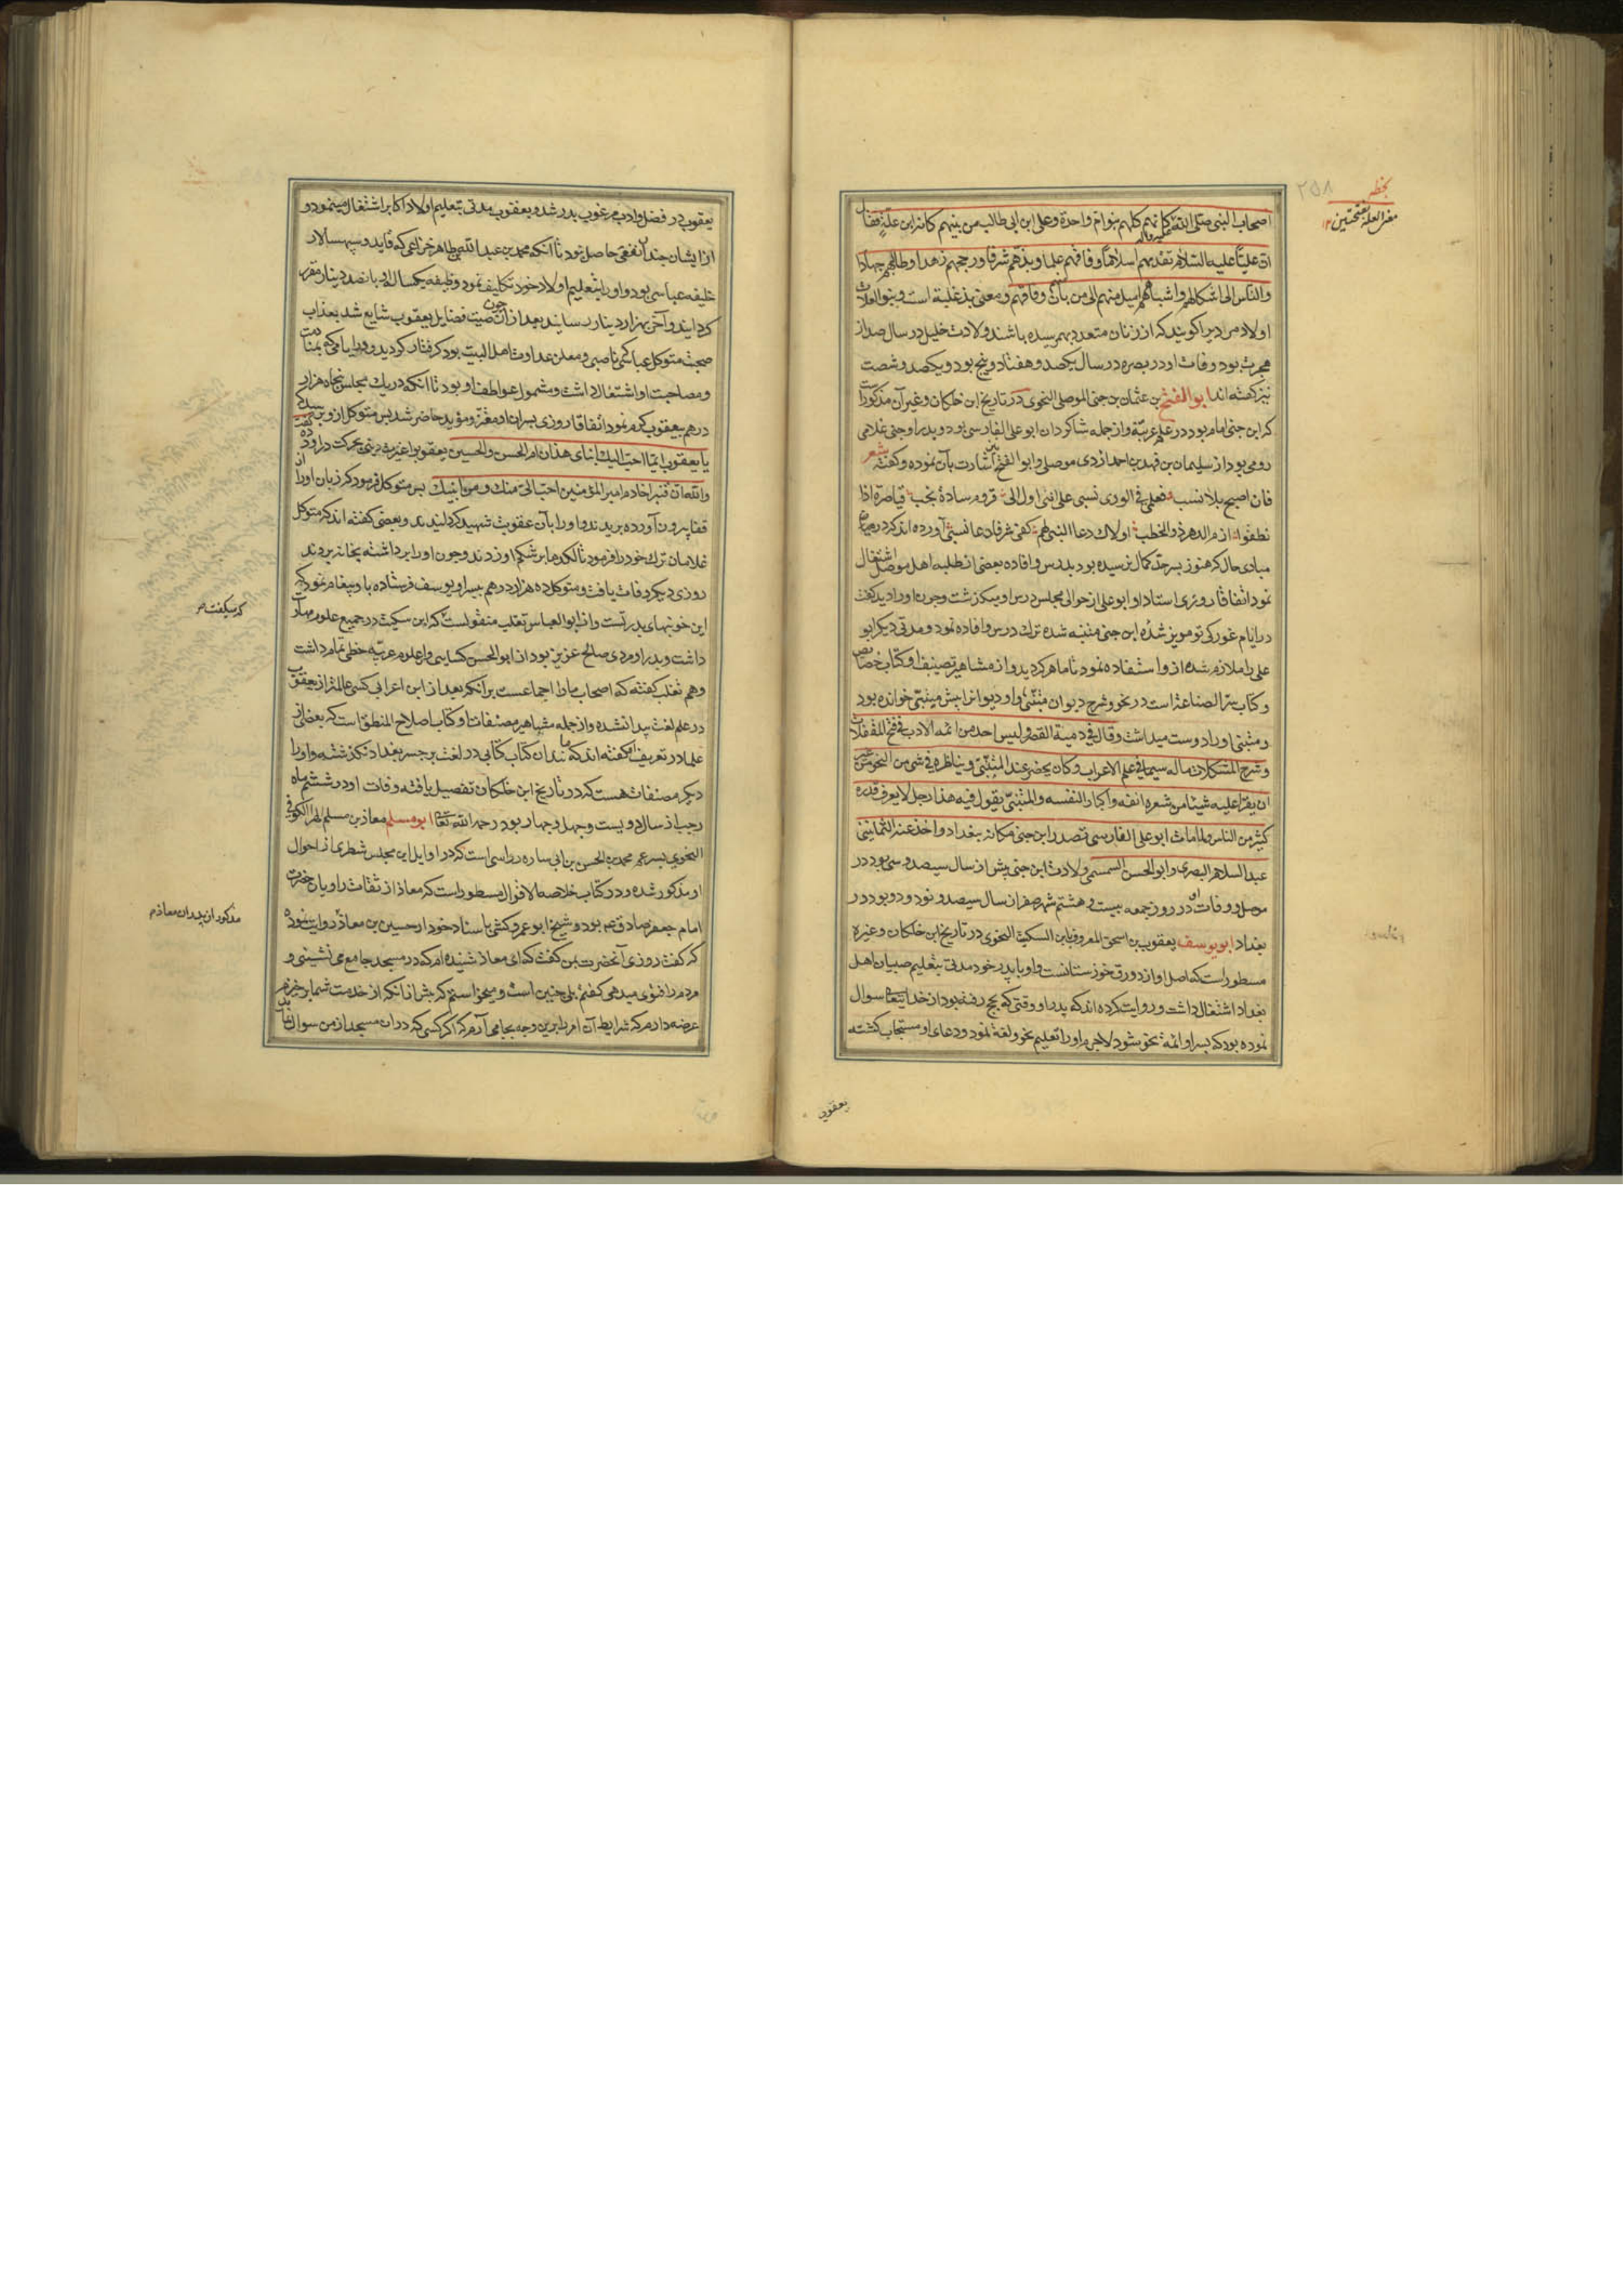 اصحاب النبی صلی الله علیه وآله کانهم کلهم بنو ام واحدة وعلی ابن ابی طالب من بینهم کانه ابن علة فقال
ان علیا علیه السلام تقدمهم اسلاما وفاقهم علما وبذهم شرفا ورجحهم زهدا وطالهم جهادا
والناس الی اشکالهم واشباههم امیل منهم الی من بان منهم وفاقهم ومعنی بذ غلبه است وبنو العلات
اولاد مردیرا کویند که از زنان متعدد بهم رسیده باشند ولادت خلیل در سال صد از
هجرت بود وفات او در بصره در سال یکصد و هفتاد و پنج بود و یکصد و شصت
نیز کفته اند ابو الفتح بن عثمان بن جنی الموصلی النحوی در تاریخ ابن خلکان وغیر آن مذکور است
که ابن جنی امام بود در علم عربیة واز جمله شاکردان ابو علی الفارسی بود و پدر او جنی غلامی
رومی بود از سلیمان بن فهد بن احمد ازدی موصلی و ابو الفتح نیز اشارت بآن نموده و کفته شعر
فان اصبح بلا نسب فعلمی فی الوری نسبی علی انی اول الی قروم سادة نجب قیاصرة اذا
نطقوا ارم الدهر ذو الخطب اولاك دعا النبی لهم کفی شرفا دعا نسبی آورده اند که در
مبادی حال که هنوز بسر حد کمال نرسیده بود بدرس وافاده بعضی از طلبه اهل موصل اشتغال
نمود اتفاقا روزی استاد او ابو علی از حوالی مجلس درس او میکذشت وچون او را دید کفت
در ایام غورکی تو مویز شدۀ ابن جنی متنبه شده ترك درس وافاده نمود و مدتی دیکر ابو
علی را ملازم شده از و استفاده نمود تا ماهر کردید واز مشاهیر تصنیفات او کتاب خصائص
وکتاب سر الصناعة است در نحو وشرح دیوان متنبی و او دیوانرا پیش متنبی خوانده بود
ومتنبی او را دوست میداشت وقال فی دمیة القصر ولیس احد من ائمة الادب فی فتح المقفلات
وشرح المشکلات ماله سیما فی علم الاعراب وکان یحضر عند المتنبی ویناظره فی شی من النحو من غیر
ان یقرأ علیه شیئا من شعره انفة واکبارا لنفسه والمتنبی یقول فیه هذا رجل لا یعرف قدره
کثیر من الناس ولما مات ابو علی الفارسی تصدر ابن جنی مکانه ببغداد واخذ عنه الثمانینی
عبد السلام البصری وابو الحسن السمسمی ولادت ابن جنی پیش از سال سیصد وسی بود در
موصل و وفات او در روز جمعه بیست و هشتم شهر صفر از سال سیصد و نود و دو بود در
بغداد ابو یوسف یعقوب بن اسحق المعروف بابن السکیت النحوی در تاریخ ابن خلکان وغیره
مسطور است که اصل او از دورق خوزستانست و او با پدر خود مدتی بتعلیم صبیان اهل
بغداد اشتغال داشت و روایت کرده اند که پدر او وقتی که بحج رفته بود از خدایتعالی سوال
نموده بود که پسر او ائمه نحو شود لاجرم او را تعلیم نحو ولغة نمود و دعای او مستجاب کشته
یعقوب
۲۵۸
بخطه
بفتحتین ۱۲
یعقوب در فضل وادب مرغوب پدر شد و یعقوب مدتی بتعلیم اولاد اکابر اشتغال مینمود و
از ایشان چندان نفعی حاصل نبود تا آنکه محمد بن عبد الله بن طاهر خزاعی که قاید و سپهسالار
خلیفه عباسی بود و او را بتعلیم اولاد خود تکلیف نمود و وظیفه یکساله او پانصد دینار مقرر
کردانید و آخر بهزار دینار رسانید بعد از آن چون صیت فضایل یعقوب شایع شد بعذاب
صحبت متوکل عباسی ناصبی ومعلن عداوت اهل البیت بود کرفتار کردید و ایامی که بمنادمت
ومصاحبت او اشتغال داشت ومشمول عواطف او بود تا آنکه در یك مجلس پنجاه هزار
درهم بیعقوب کرم نمود اتفاقا روزی پسران او معتز ومؤید حاضر شدند پس متوکل از و پرسید که
یا یعقوب ایما احب الیك ابنای هذان ام الحسن والحسین یعقوب را غیرت دینی بحرکت در آورده کفت
والله ان قنبرا خادم امیر المؤمنین احب الی منك ومن ابنیك پس متوکل فرمود که زبان او را از
قفا بیرون آورده بریدند و او را بآن عقوبت شهید کردانیدند وبعضی کفته اند که متوکل
غلامان ترك خود را فرمود تا لکدها بر شکم او زدند وچون او را برداشته بخانه بردند
روزی دیکر وفات یافت ومتوکل ده هزار درهم پسر او یوسف فرستاده باو پیغام نمود که
این خونبهای پدر تست واز ابو العباس ثعلب منقولست که ابن سکیت در جمیع علوم مهارت
داشت و پدر او مردی صالح عزیز بود از ابو الحسن کسایی و از علوم عربیه حظی تمام داشت
وهم ثعلب کفته که اصحاب ما را اجماعست بر آنکه بعد از ابن اعرابی کسی عالمتر از یعقوب
در علم لغت پیدا نشده و از جمله مشاهیر مصنفات او کتاب اصلاح المنطق است که بعضی از
علما در تعریف آن کفته اند که مانند آن کتاب کتابی در لغت بر جسر بغداد نکذشته و او را
دیکر مصنفات هست که در تاریخ ابن خلکان تفصیل یافته و وفات او در ششم ماه
رجب از سال دویست و چهل و چهار بود رحمه الله تعالی ابو مسلم معاذ بن مسلم الهرا الکوفی
النحوی پسر عم محمد بن الحسن بن ابی ساره رواسی است که در اوایل این مجلس شطری از احوال
او مذکور شده و در کتاب خلاصه الاقوال مسطور است که معاذ از ثقات راویان حضرت
امام جعفر صادق عم بوده و شیخ ابو عمرو کشی باسناد خود از حسین بن معاذ روایت نموده
که کفت روزی آنحضرت بمن کفت که ای معاذ شنیده ام که در مسجد جامع می نشینی و
مردم را فتوی میدهی کفتم بلی چنین است و میخواستم که پیش از آنکه از خدمت شما برخیزم
عرضه دارم که شرایط آن امر را برین وجه بجا می آرم که اکر کسی که در ان مسجد از من سوال
که میکفت
مذکور از پدران معاذم